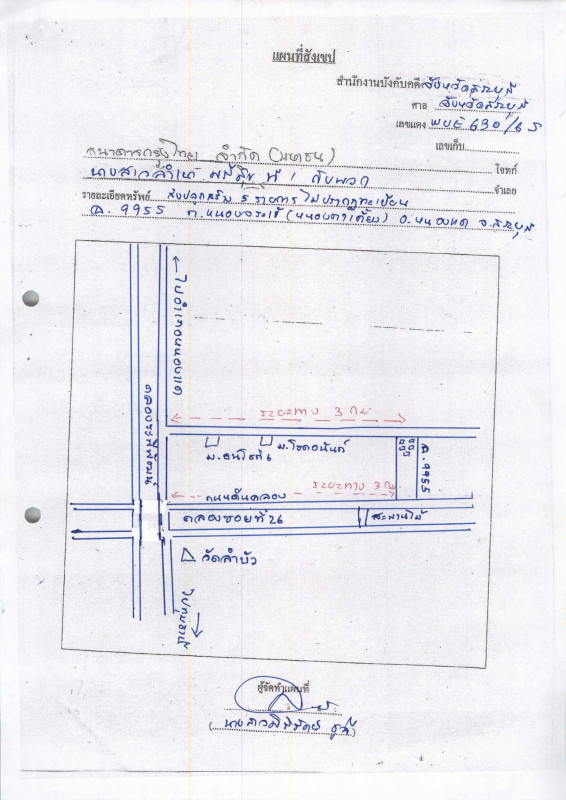 แผนที่สังเขป
สำนักงานบังคับคดี จังหวัดสระบุรี
ศาล จังหวัดสระบุรี
เลขแดง ผบE 630/65
เลขเก็บ
ธนาคารกรุงไทย จำกัด (มหาชน) โจทก์
นางสาวลำเพา ที่ 1 กับพวก จำเลย
รายละเอียดทรัพย์ สิ่งปลูกสร้าง 5 รายการ ไม่ปรากฏทะเบียน
ฉ. 9955 ต.หนองจรเข้ (หนองตาเดี้ย) อ.หนองแค จ.สระบุรี
ไปอำเภอหนองแค
คลองระพีพัฒน์
ระยะทาง 3 กม
ม.ธนโชติ 6
ม.โชคอนันต์
ฉ. 9955
ระยะทาง 3 กม
ถนนคันคลอง
คลองซอยที่ 26
สะพานไม้
วัดลำบัว
ไปปทุมธานี
ผู้จัดทำแผนที่
(นางสาว